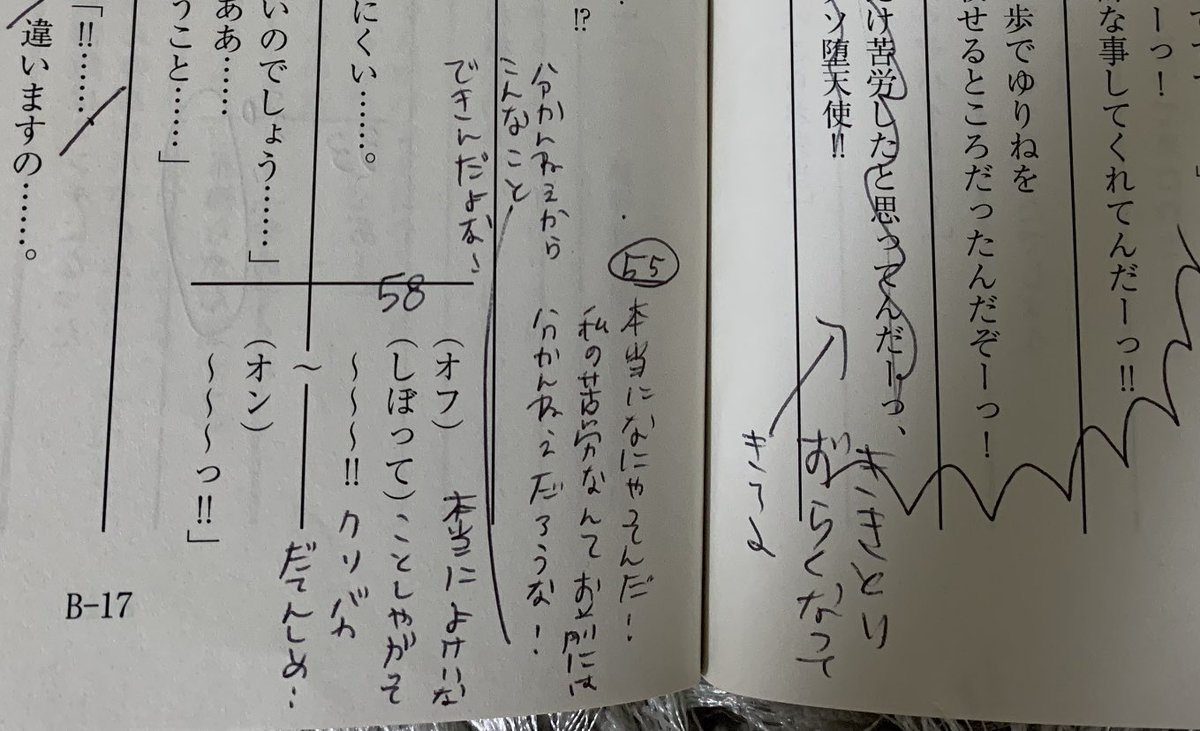 ーっ！
な事してくれてんだーっ!!
歩でゆりねを
せるところだったんだぞーっ！
け苦労したと思ってんだーっ、
ソ堕天使!!
ききとり
づらくなって
きろよ
!?
55
本当になにやそんだ！
私の苦労なんてお前には
分かんねぇだろうな！
分かんねぇから
こんなこと
できんだよな
にくい……。
58
（オフ）
本当によけいな
（しぼって）
ことしやがって
～～～!!
クソバカ
～
だてんしめ！
いのでしょう……」
（オン）
ああ……
～～～っ!!」
うこと……」
「!!……
違いますの……。
B-17